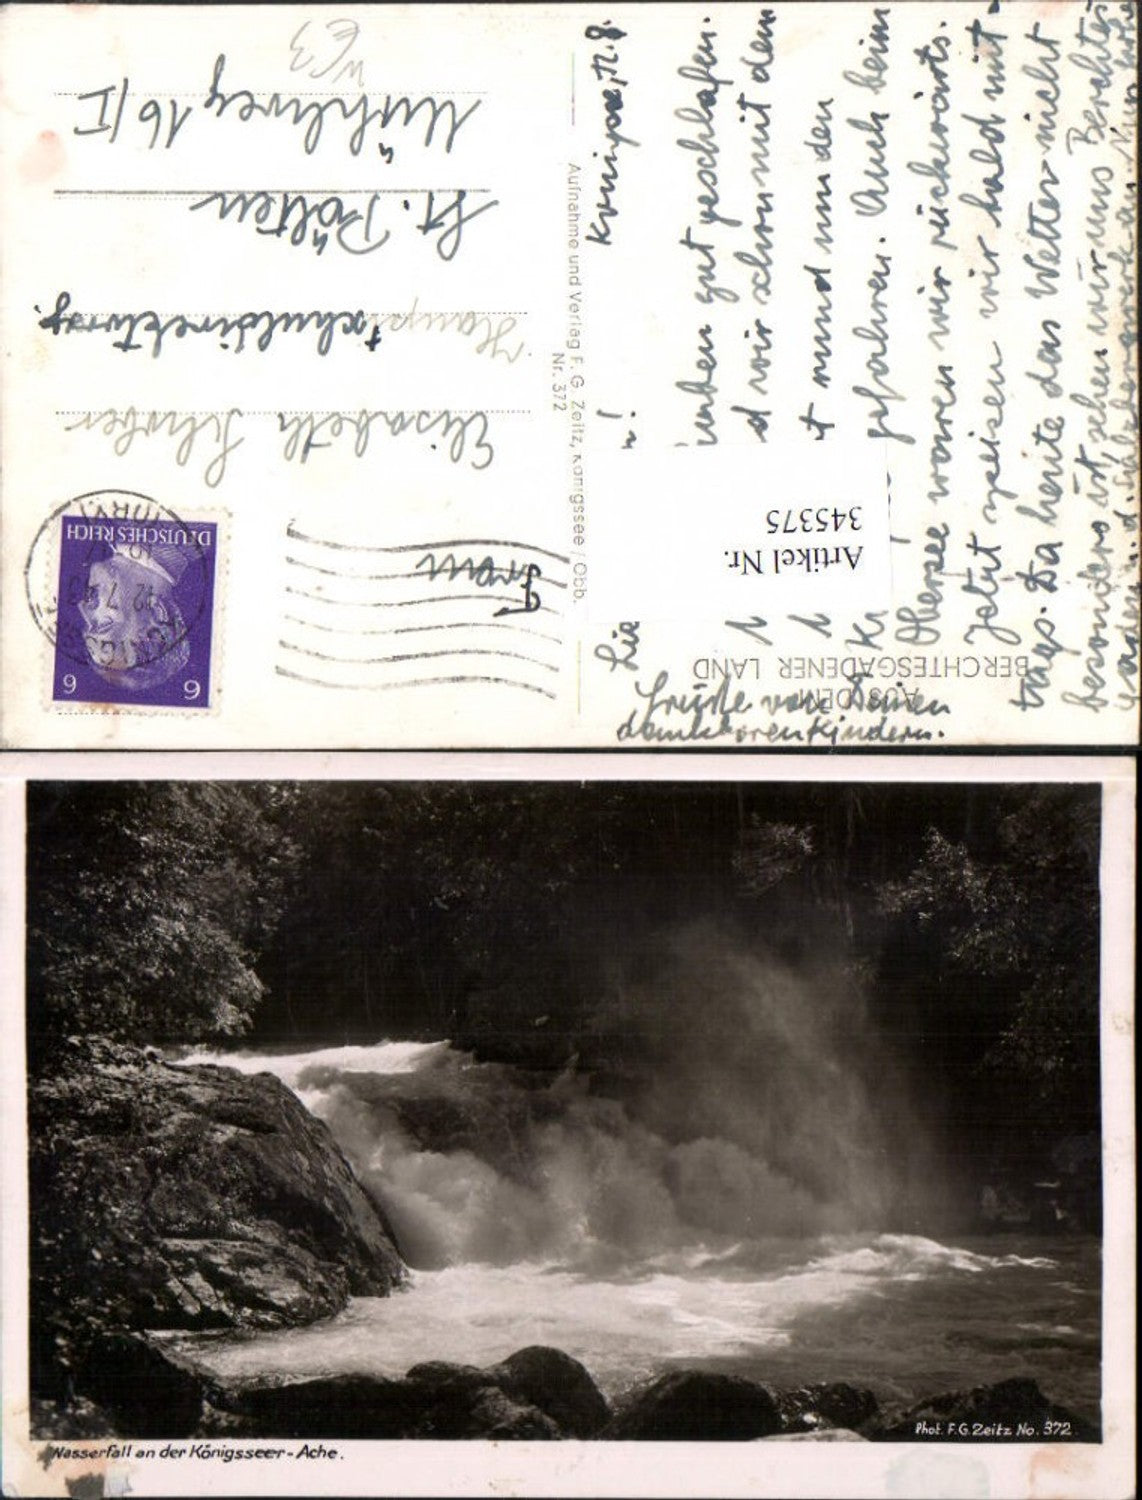 Königssee, 12. 7.
Lie
haben gut geschlafen.
d wir schon mit dem
t rund um den
Kö gefahren. Auch beim
Obersee waren wir rückwärts.
Jetzt speisen wir bald mit-
tags. Da heute das Wetter nicht
besonders ist sehen wir uns Berchtes
gaden u. d. Salzbergwerk an.
Grüße von Deinen
dankbaren Kindern.
AUS DEM
BERCHTESGADENER LAND
Artikel Nr.
345375
Aufnahme und Verlag F. G. Zeitz, Königssee / Obb.
Nr. 372
DEUTSCHES REICH
6 6
Frau
Elisabeth Schober
Hauptschuldirektorsg.
St. Pölten
Mühlweg 16/I
Wasserfall an der Königsseer-Ache.
Phot. F.G.Zeitz No. 372